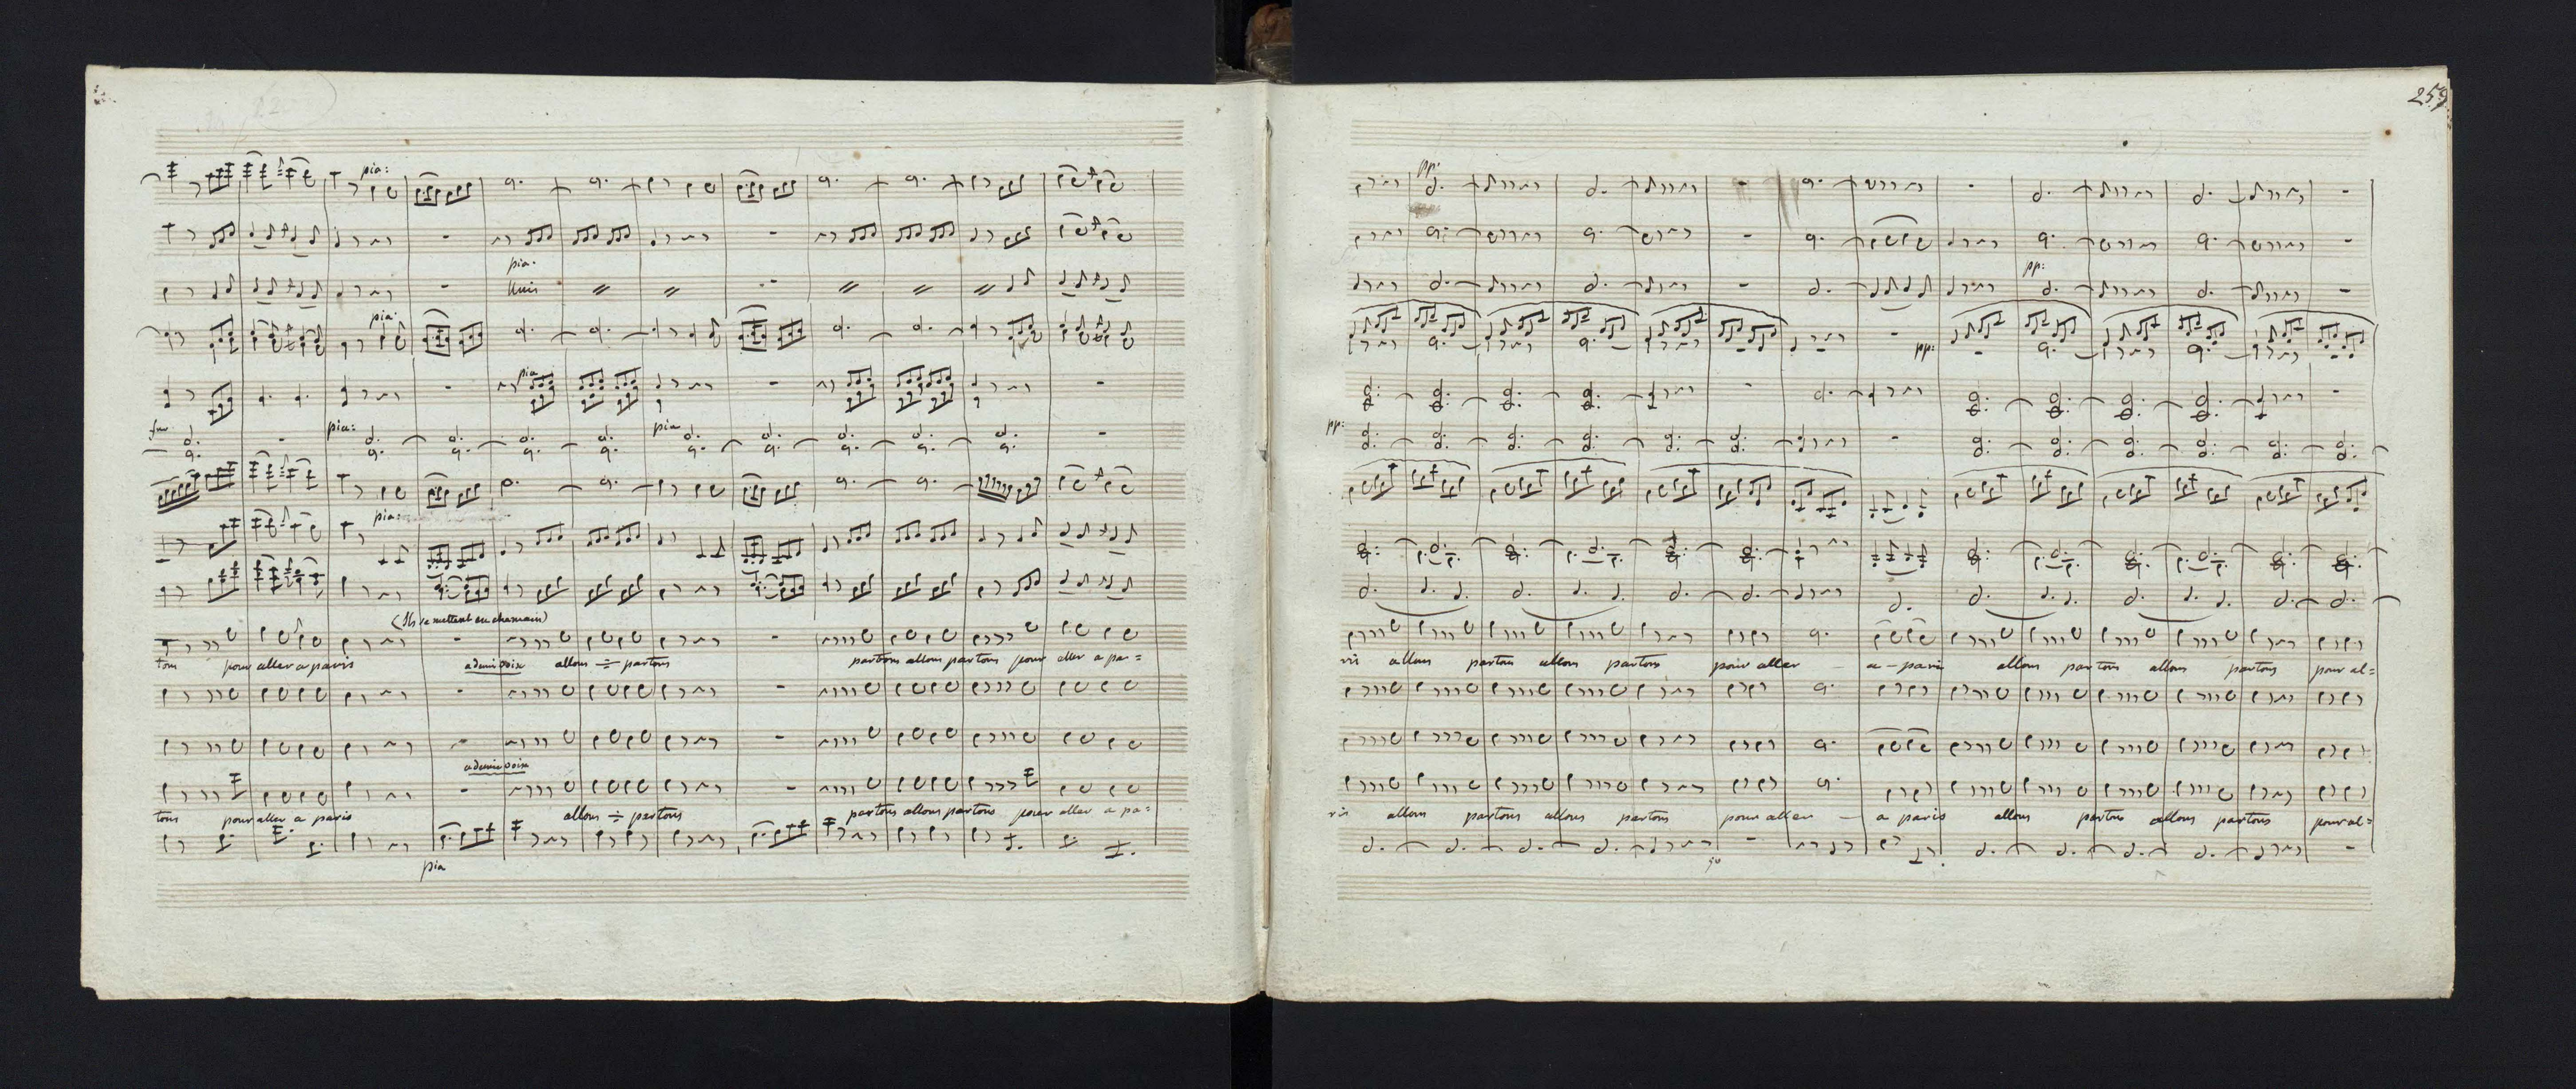 pia:
pia.
unis
pia:
pia
pia: pia
pia:
(Ils se mettent en chemain)
tons pour aller a paris a demi voix allons ÷ partons partons allons partons pour aller a pa=
a demi voix
tons pour aller a paris allons ÷ partons partons allons partons pour aller a pa=
pia
259
pp:
pp:
pp:
pp:
ris allons partons allons partons pour aller — a - paris allons partons allons partons pour al=
ris allons partons allons partons pour aller — a paris allons partons allons partons pour al=